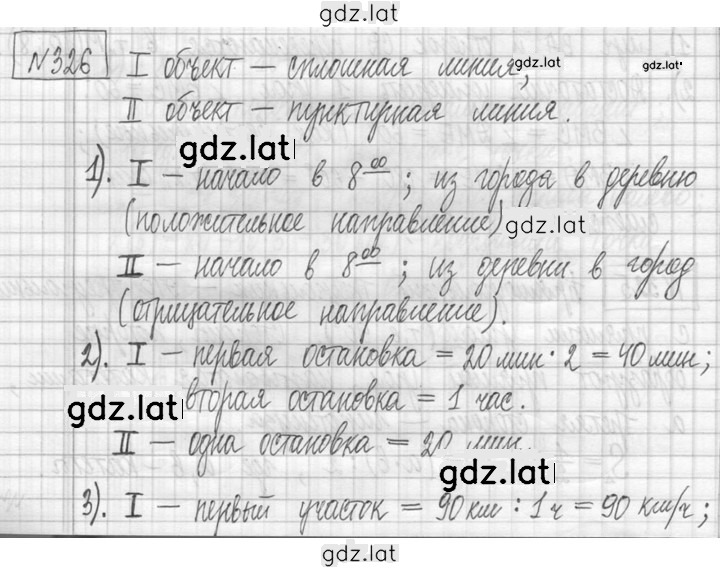 gdz.lat
№326 I объект — сплошная линия, gdz.lat gdz.lat
II объект — пунктирная линия.
gdz.lat
1). I — начало в 8⁰⁰; из города в деревню
(положительное направление) gdz.lat
II — начало в 8⁰⁰; из деревни в город
(отрицательное направление).
2). I — первая остановка = 20 мин · 2 = 40 мин;
gdz.lat вторая остановка = 1 час.
II — одна остановка = 20 мин.
gdz.lat
3). I — первый участок = 90 км : 1 ч = 90 км/ч;
gdz.lat